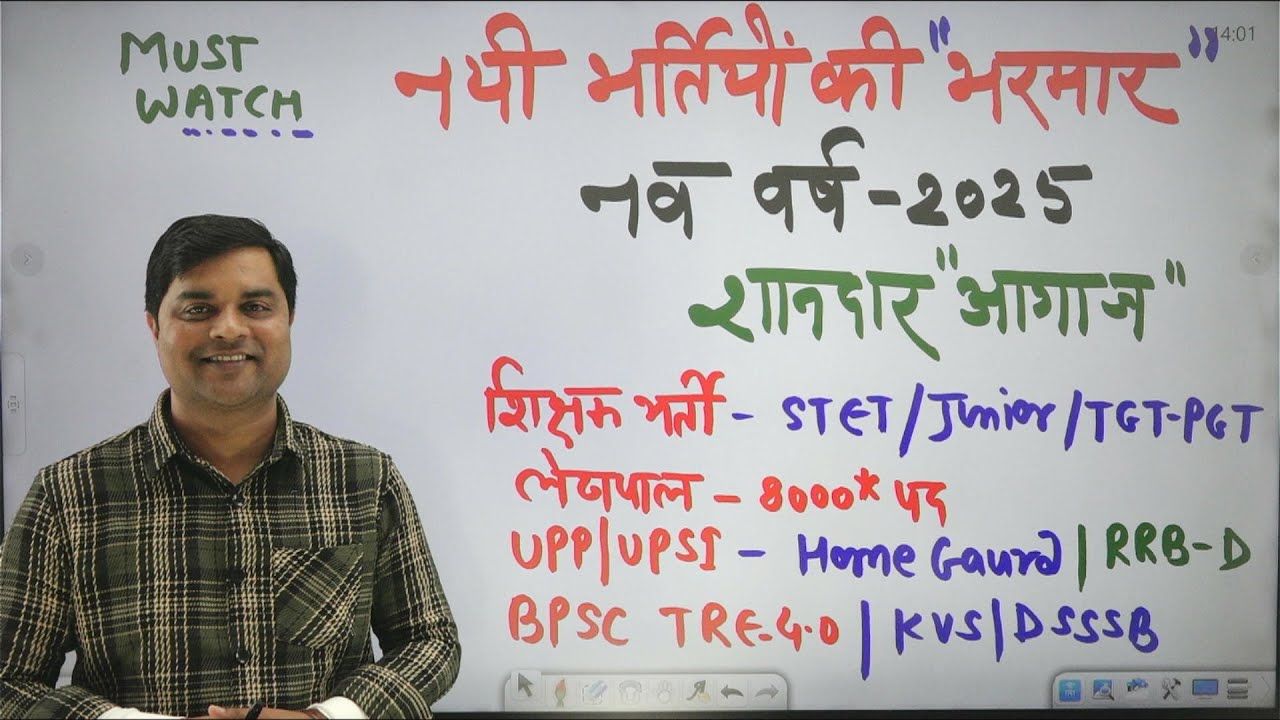 MUST
WATCH
14:01
नयी भर्तियों की "भरमार"
नव वर्ष - 2025
शानदार "आगाज"
शिक्षक भर्ती - STET/Junior/TGT-PGT
लेखपाल - 8000* पद
UPP/UPSI - Home Gaurd | RRB-D
BPSC TRE-4.0 | KVS | DSSSB